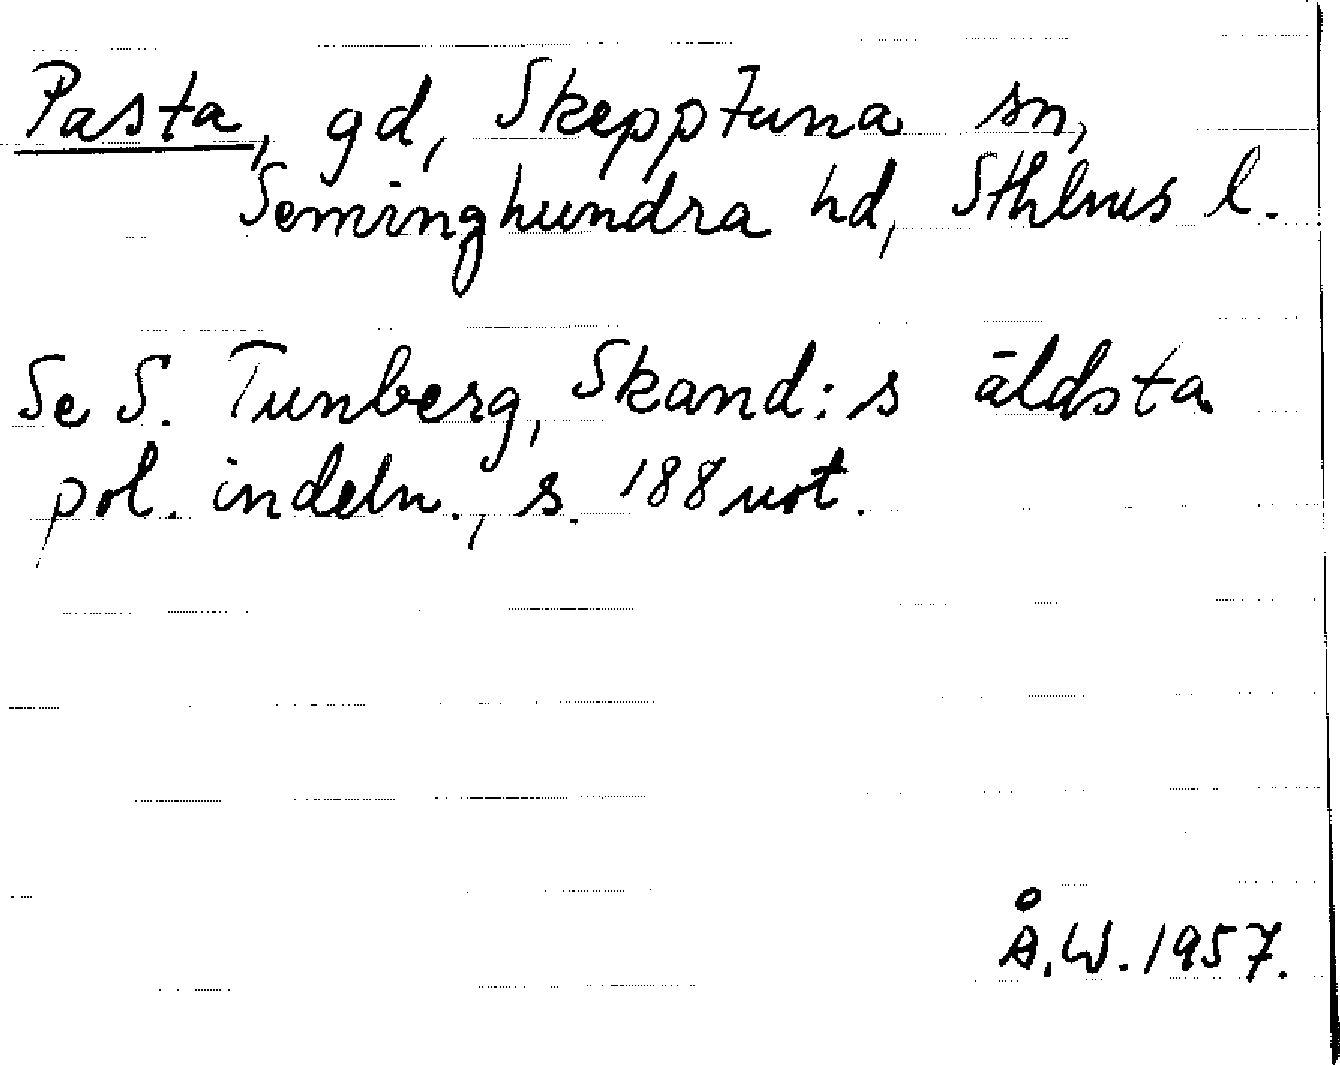 Pasta, gd, Skepptuna sn,
Seminghundra hd, Sthlms l.
Se S. Tunberg, Skand:s äldsta
pol. indeln., s. 188 not.
Å.W. 1957.